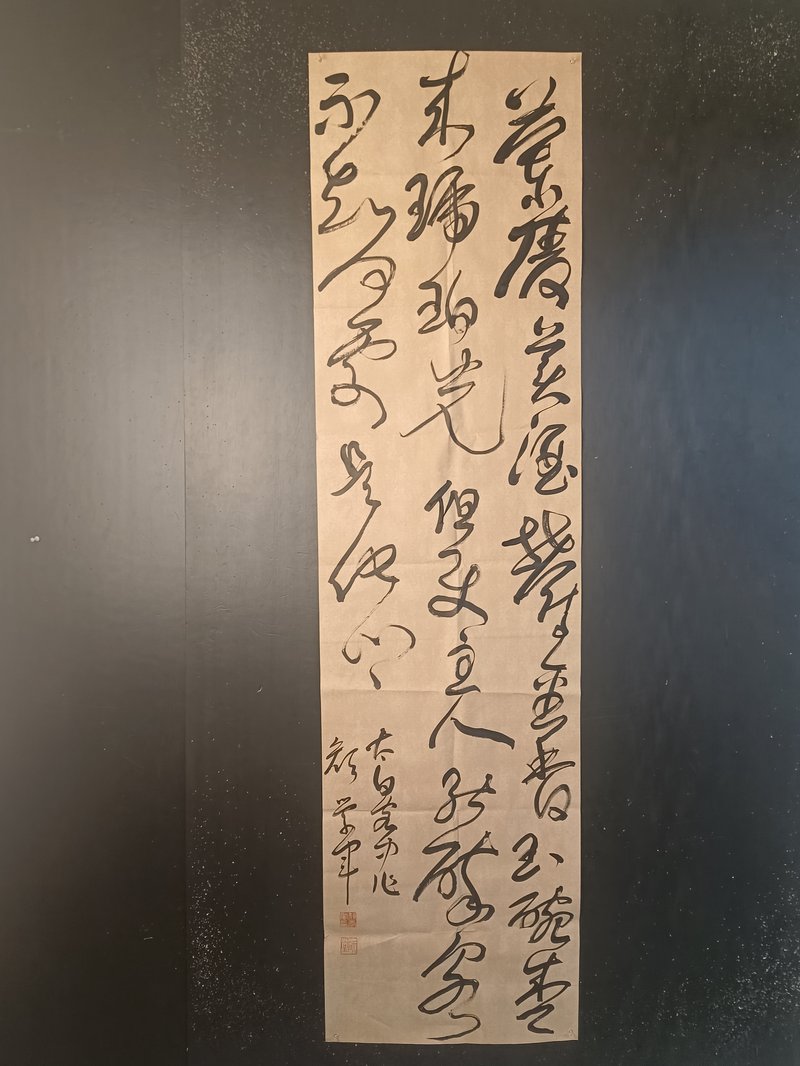 蘭陵美酒鬱金香玉碗盛
来琥珀光但使主人能醉客
不知何處是他鄉
太白客中作
學軍